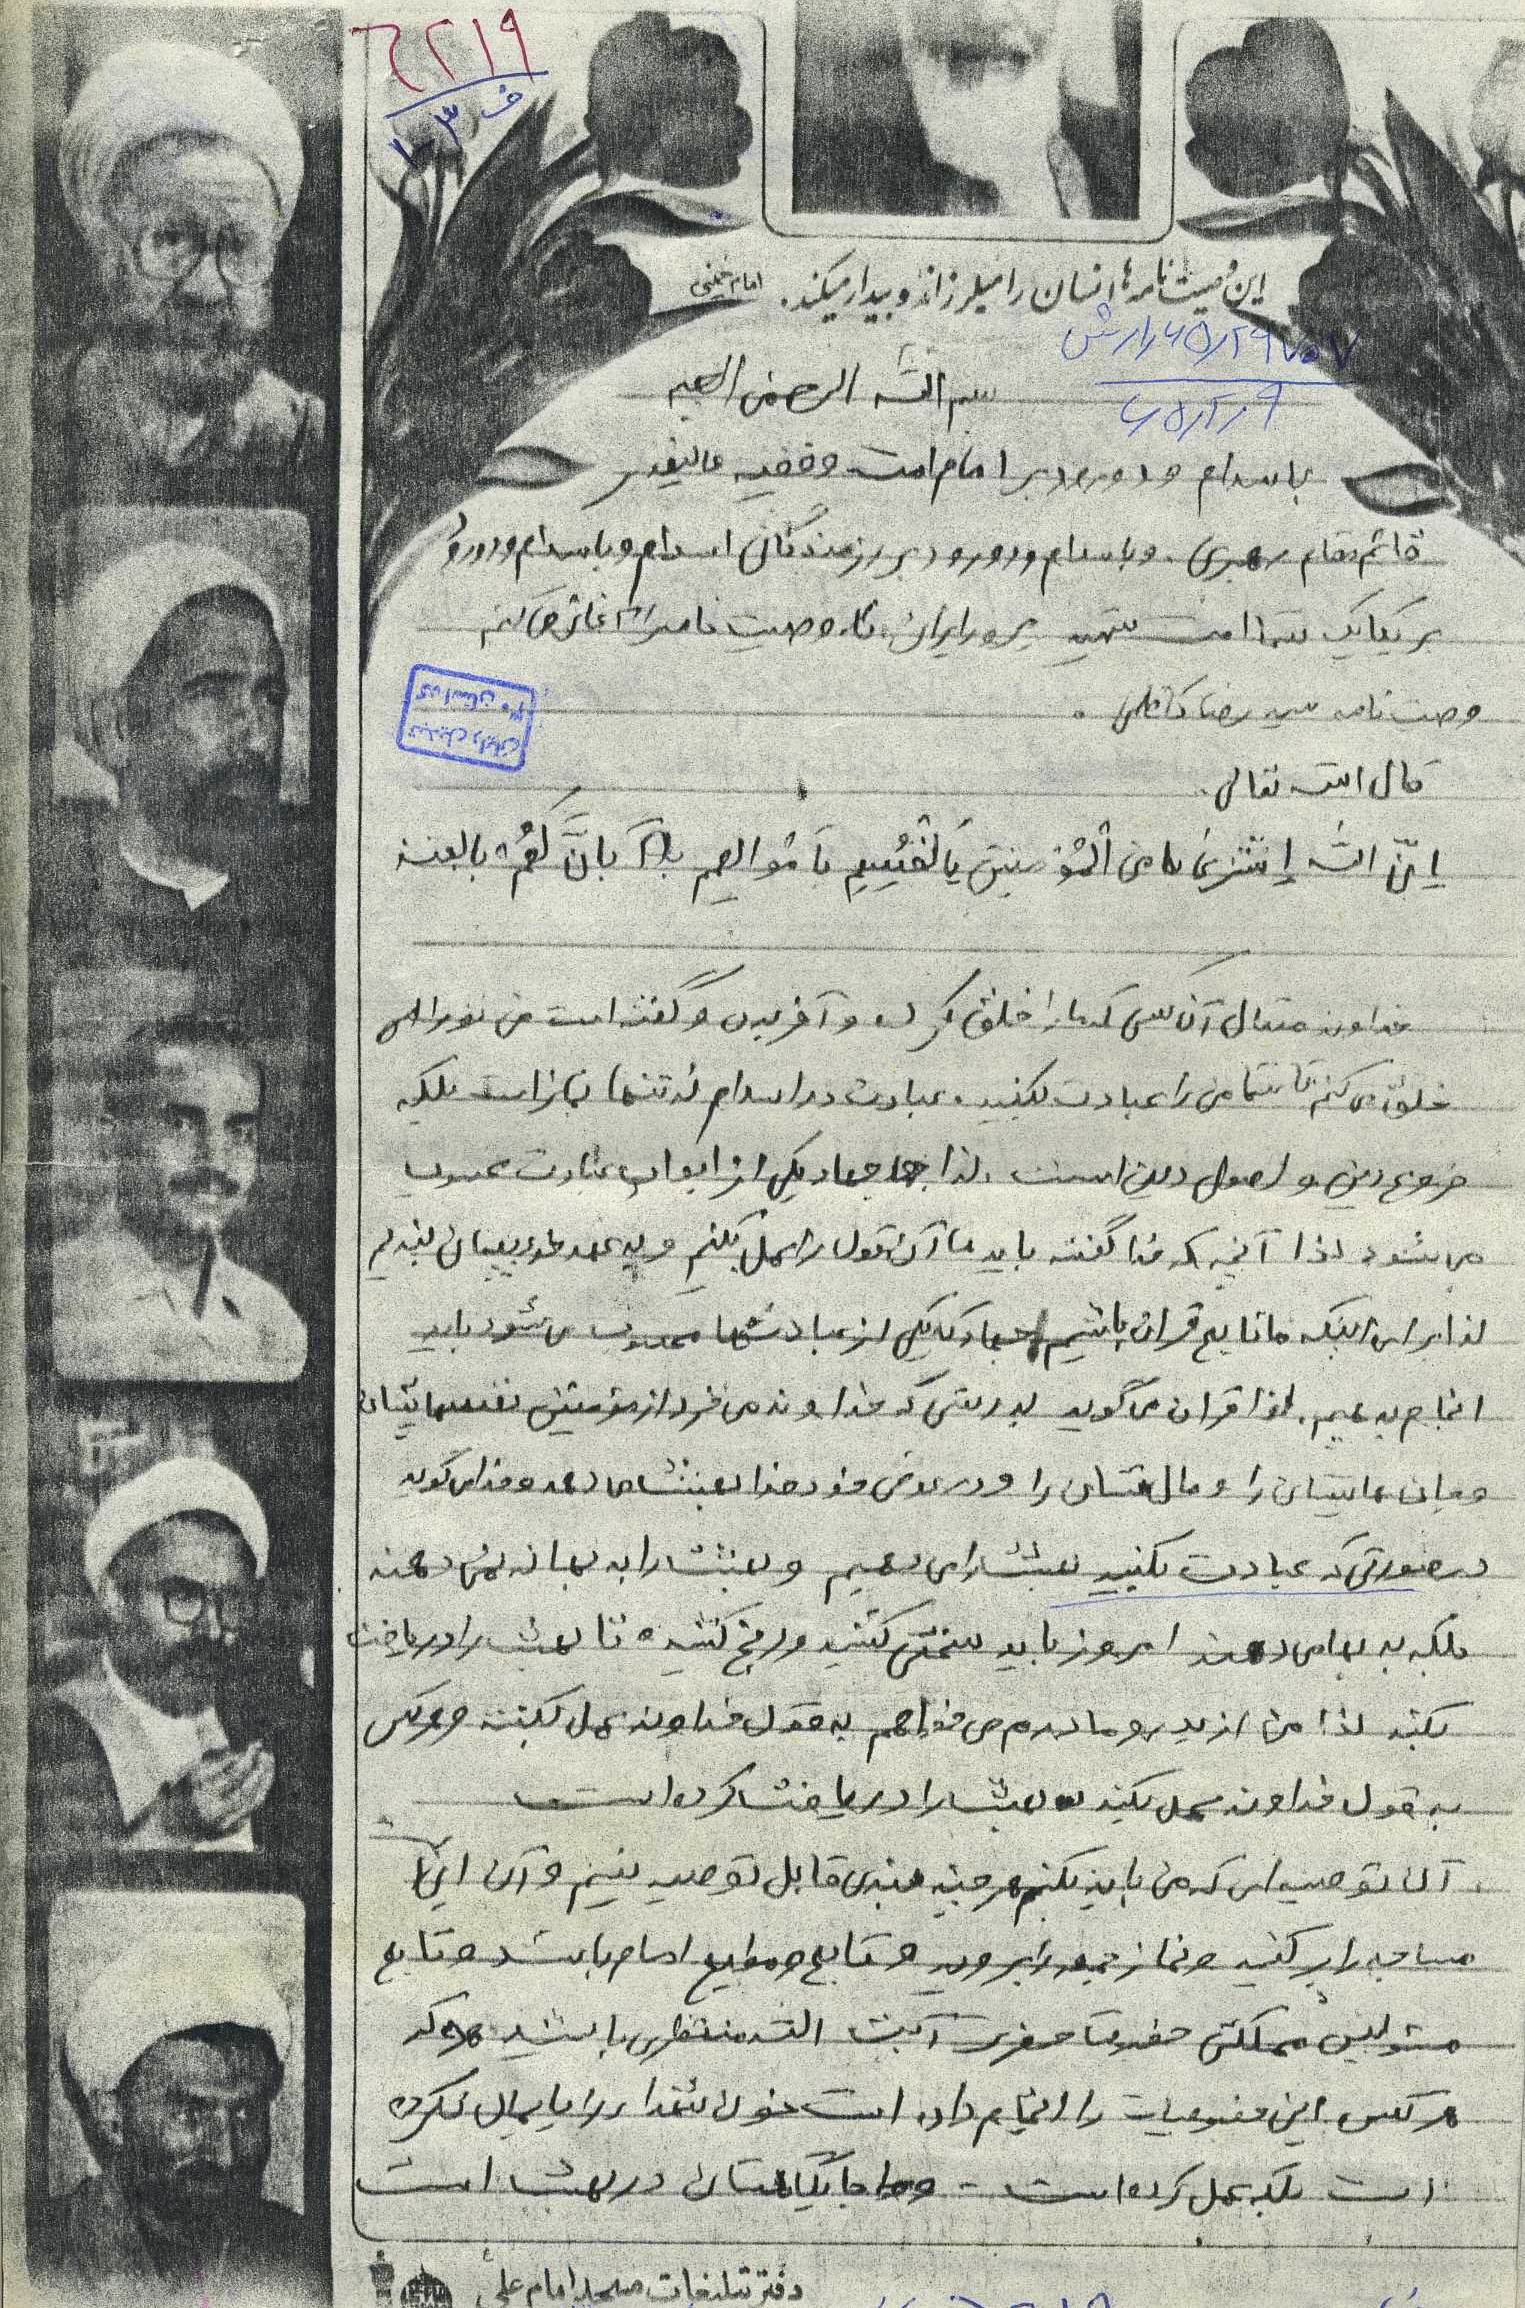 ۶۲۱۹
ف ۱۰۳
این وصیت نامه ها انسان را میلرزاند و بیدار میکند. امام خمینی
۶۵/۲/۹
بسم الله الرحمن الرحیم
با سلام و درود بر امام امت و فقیه عالیقدر
قائم مقام رهبری. و با سلام و درود بر رزمندگان اسلام و با سلام و درود
بر یکایک شما امت شهید پرور ایران. وصیت نامه را آغاز می کنم
وصیت نامه سید رضا کاظمی.
قال الله تعالی.
اِنَّ الله اِشتری من المؤمنین اَنفُسِهِم بِاَنَّ لَهُم بالجنه
خداوند متعال آن کسی که ما را خلق کرد و آفرید و گفته است من
خلق می کنم تا شما من را عبادت بکنید. عبادت در اسلام نه تنها نماز است بلکه
فروع دین و اصول دین است. لذا جهاد یکی از ابواب عبادت محسوب
می شود لذا آنچه که خدا گفته باید ما آن قول را عمل بکنیم و به عهد
لذا برای اینکه ما تابع قران باشیم جهاد که یکی از عبادتها محسوب می شود باید
انجام بدهیم. لذا قران می گوید بدرستی که خداوند می خرد از مؤمنین نفسهایشان
و جان هایشان را و مالشان را و در عوض خود خدا بهشت می دهد و خدا می گوید
در صورتی که عبادت بکنید بهشت را می دهیم و بهشت را به بهانه نمی دهند
بلکه به بها می دهند امروز باید سختی کشید و رنج کشید تا بهشت را دریافت
بکند لذا من از پدر و مادرم می خواهم به قول خداوند عمل بکنند و هرکس
به قول خداوند عمل بکند بهشت را دریافت کرده است
آن توصیه ای که من باید بکنم هر چند بنده قابل توصیه نیستم و آن این
مساجد را پر کنید و نماز جمعه را بروید و تابع و مطیع امام باشید و تابع
مسئولین مملکتی خصوصا حضرت آیت الله منتظری باشید که
هر کس این را انجام داده است خون شهدا را پایمال نکرده
است بلکه عمل کرده است - و جایگاهشان در بهشت است
دفتر تبلیغات مسجد امام علی